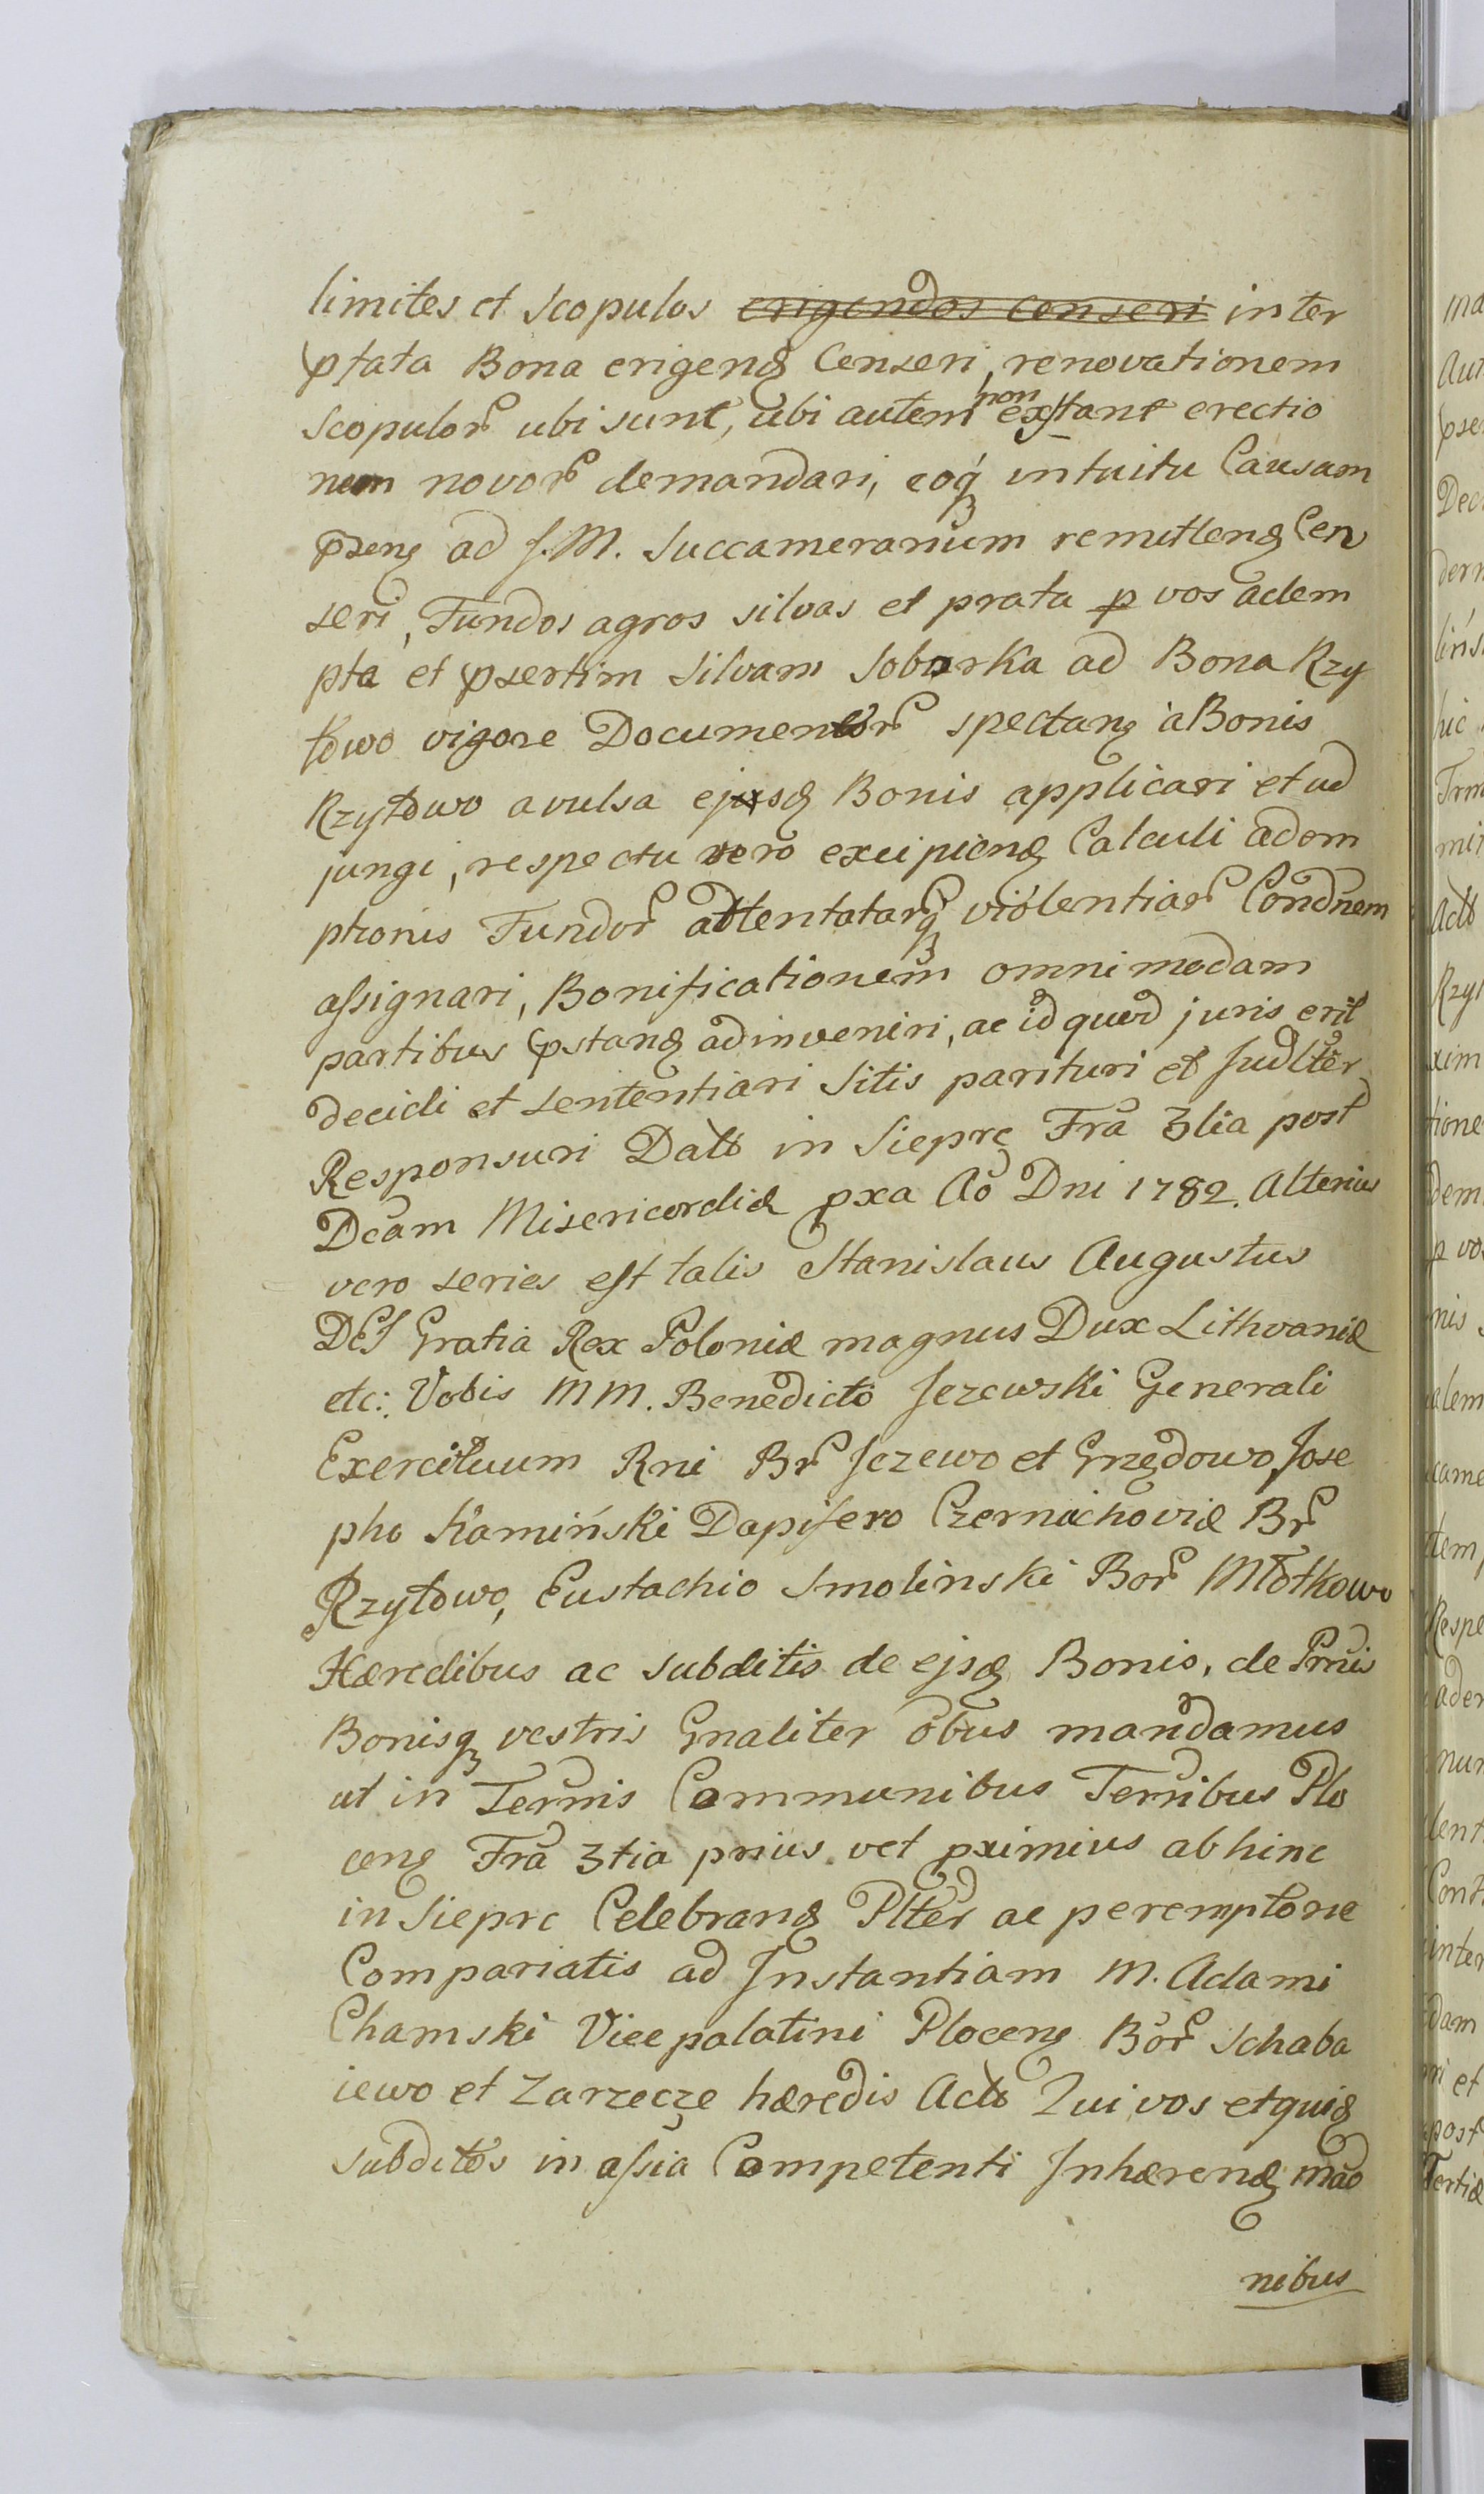 limites et Scopulos erigendos Censeri inter
ptata Bona erigend Censeri, renovationem
Scopulor ubi sunt, ubi autem non exstant erectio
nem novor demandari, eoq intuitu Causam
psens ad J. M. Succamerarium remittend Cen
seri, Fundos agros silvas et prata p vos adem
pta et psertim Silvam Soborka ad Bona Rzy
towo vigore Documentor spectan a Bonis
Rzytowo avulsa ejusd Bonis applicari et ad
jungi, respectu vero excipiend Calculi adem
ptionis Fundor attentatarq violentiar Condnem
assignari, Bonificationem omnimodam
partibus pstand adinveniri, ac id quod juris erit
decidi et sententiari Sitis parituri et Judlter
Responsuri Datt in Sieprc Fra 3tia post
Dcam Misericordiæ pxa Ao Dni 1782. Alterius
vero series est talis Stanislaus Augustus
DEI Gratia Rex Poloniæ magnus Dux Lithvaniæ
etc: Vobis MM. Benedicto Jezewski Generali
Exercituum Rni Br Jezewo et Grzędowo, Jose
pho Kamiński Dapifero Czernichoviæ Br
Rzytowo, Eustachio Smolinski Bor Młotkowo
Hæredibus ac subditis de ejsd Bonis, de Prnis
Bonisq vestris Gnaliter obus mandamus
ut in Termis Communibus Terribus Plo
cen Fra 3tia prius vel pximius abhinc
in Sieprc Celebrand Plter ac peremptorie
Compariatis ad Instantiam M. Adami
Chamski Vicepalatini Plocen Bor Schaba
iewo et Zarzecze hæredis Actt Qui vos et quid
subditos in assia Competenti Inhærend mao
nibus